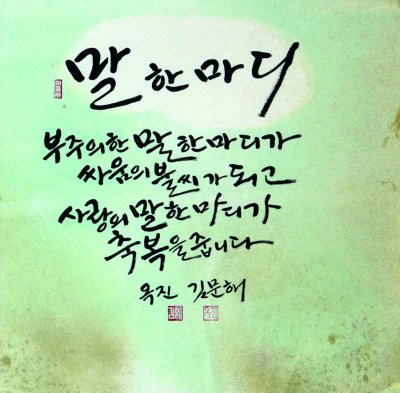 말 한 마디
부주의한 말 한 마디가
싸움의 불씨가 되고
사랑의 말 한 마디가
축복을 줍니다
옥진 김문해